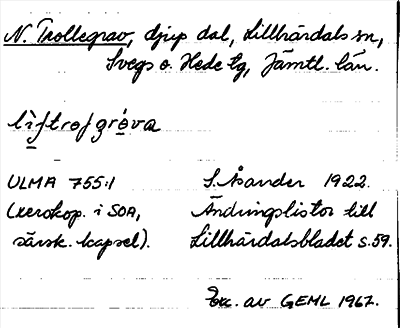 N. Trollegrav, djup dal, Lillhärdals sn,
Svegs o. Hede tg, Jämtl. län.
ULMA 755:1 S. Åsander 1922.
(xerokop. i SOA, Ändringslistor till
särsk. kapsel). Lillhärdalsbladet s.59.
Exc. av GEML 1967.